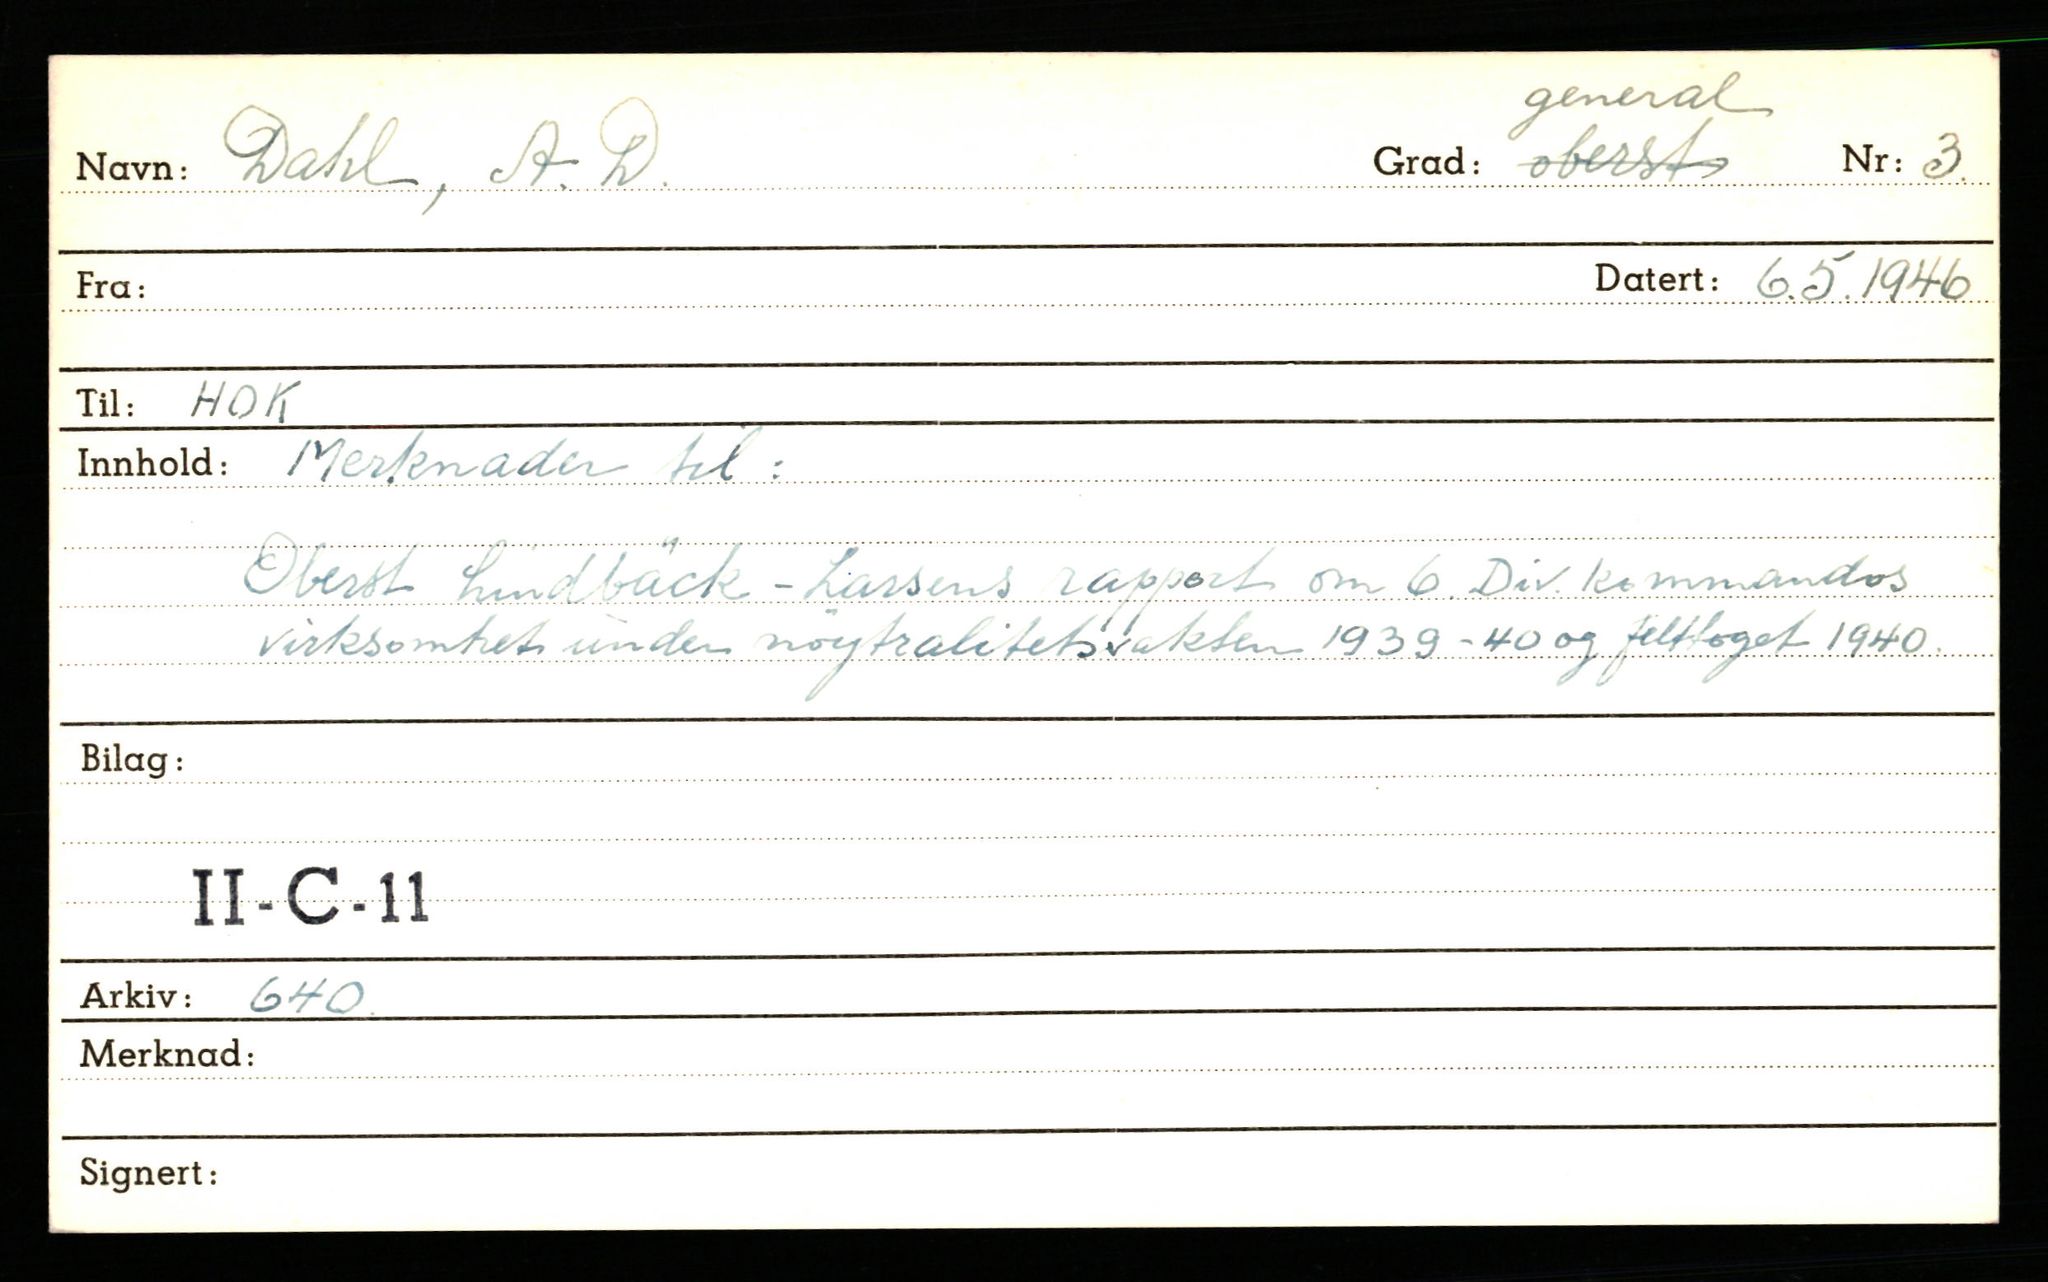 general
Navn: Dahl, A. D. Grad: oberst Nr: 3.
Fra: Datert: 6.5.1946
Til: HOK
Innhold: Merknader til:
Oberst Lindbäck-Larsens rapport om 6. Div. kommandos
virksomhet under nöytralitetsvakten 1939-40 og felttoget 1940.
Bilag:
II-C-11
Arkiv: 640.
Merknad:
Signert: